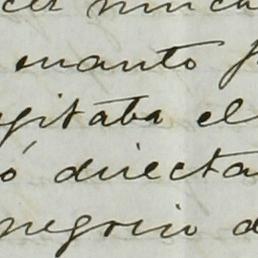 cer nunca
cuanto
gitaba el
ó directa
negocio d